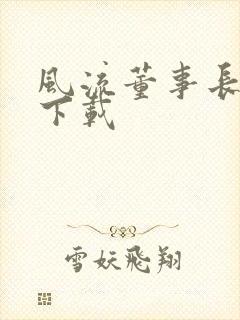 風流董事長
下載
雪妖飛翔